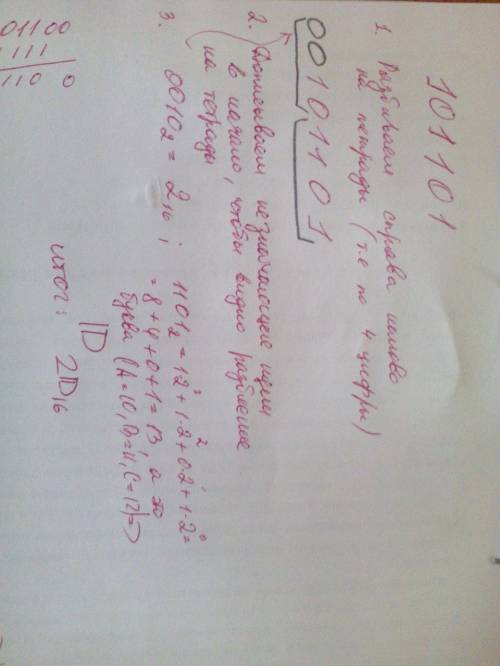 101101
1. Разбиваем справа налево
на тетрады (т.е по 4 цифры)
00101101
2. Дописываем незначающие нули
в начало, чтобы видно разбиение
на тетрады
3. 0010₂ = 2₁₆ ; 1101₂ = 1·2³ + 1·2² + 0·2¹ + 1·2⁰ =
= 8 + 4 + 0 + 1 = 13, а это
буква (A=10, B=11, C=12) =>
D
итог: 2D₁₆
01100
1111
110 0